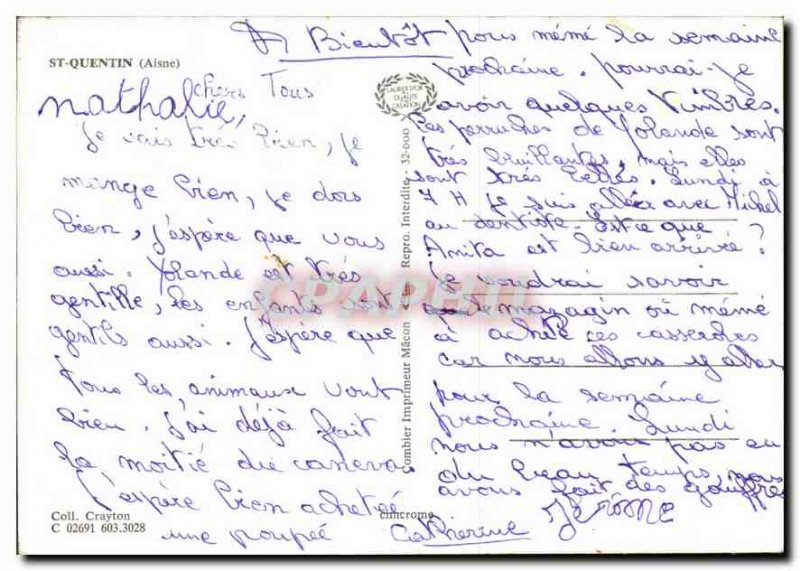 ST-QUENTIN (Aisne)
chers Tous
nathalie,
Je vais très bien, je
mange bien, je dors
bien, j'espère que vous
aussi. Yolande est très
gentille, les enfants sont
gentils aussi. J'espère que
tous les animaux vont
bien. J'ai déjà fait
la moitié du caneva
J'espère bien acheter
une poupée
Coll. Crayton
C 02691 603.3028
Combier Imprimeur Mâcon
Repro. Interdite - 32-000
cimcrome
LAURIER D'OR
QUALITÉ
CREATION
CPAPHIL
A Bientôt pour mémé la semaine
prochaine. pourrai-je
avoir quelques timbres.
Les perruches de Yolande sont
très bruillantes, mais elles
sont très belles. Lundi à
7 H je suis allée avec Michel
au dentiste. Est ce que
Anita est bien arrivée ?
Je voudrai savoir
le magazin où mémé
à acheté ces casseroles
car nous allons y aller
pour la semaine
prochaine. Lundi
nous n'avons pas eu
du beau temps, nous
avons fait des gauffres
Catherine
Jérôme